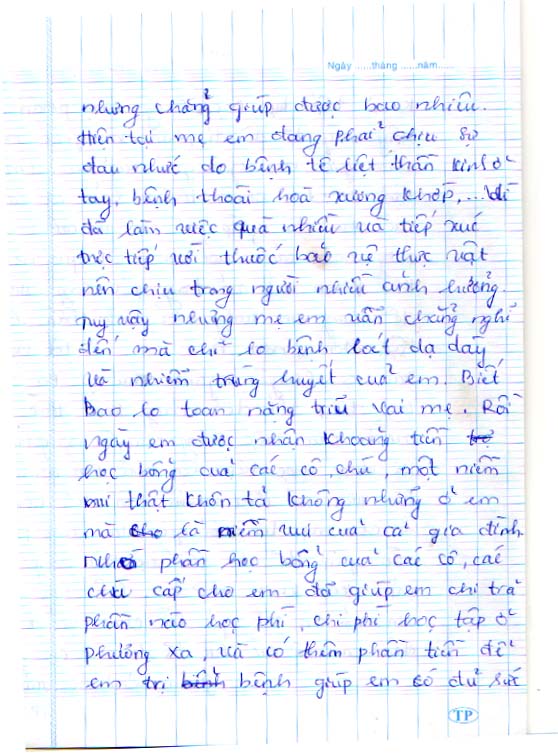 Ngày ......tháng ......năm......
nhưng chẳng giúp được bao nhiêu.
Hiện tại mẹ em đang phải chịu sự
đau nhức do bệnh tê liệt thần kinh ở
tay, bệnh thoái hoá xương khớp,... Vì
đã làm việc quá nhiều và tiếp xúc
trực tiếp với thuốc bảo vệ thực vật
nên chịu trong người nhiều ảnh hưởng.
Tuy vậy nhưng mẹ em vẫn chẳng nghĩ
đến mà chỉ lo bệnh loét dạ dày
và nhiễm trùng huyết của em. Biết
bao lo toan nặng trĩu vai mẹ. Rồi
ngày em được nhận khoảng tiền
học bổng của các cô, chú, một niềm
vui thật khôn tả không những ở em
mà là niềm vui của cả gia đình.
Nhờ phần học bổng của các cô, các
chú cấp cho em đã giúp em chi trả
phần nào học phí, chi phí học tập ở
phương xa, và có thêm phần tiền để
em trị bệnh giúp em có đủ sức
TP